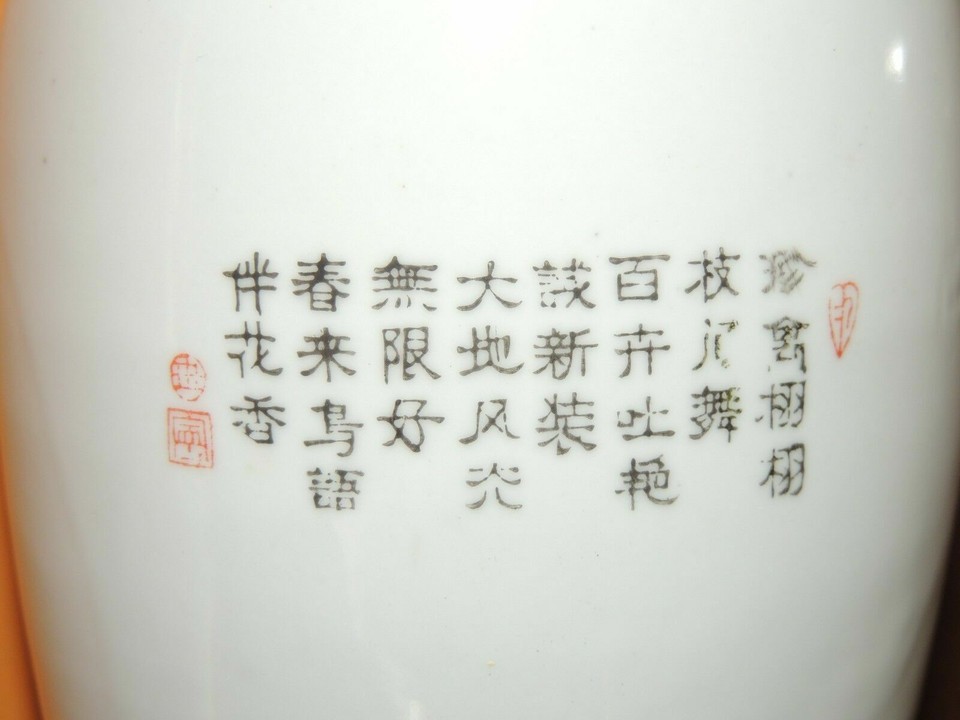 珍禽栩栩
枝舞
百卉吐艳
新装
大地风光
無限好
春来鸟語
伴花香